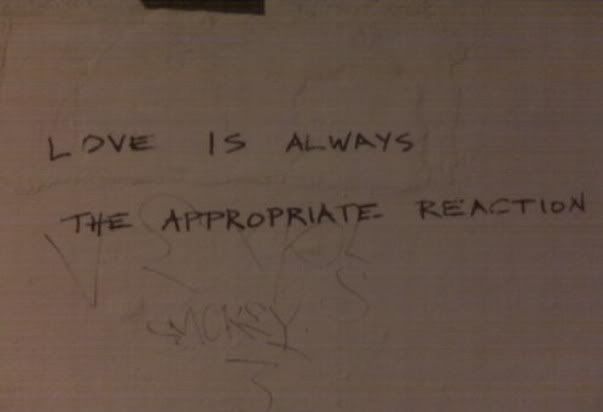 LOVE IS ALWAYS
THE APPROPRIATE REACTION